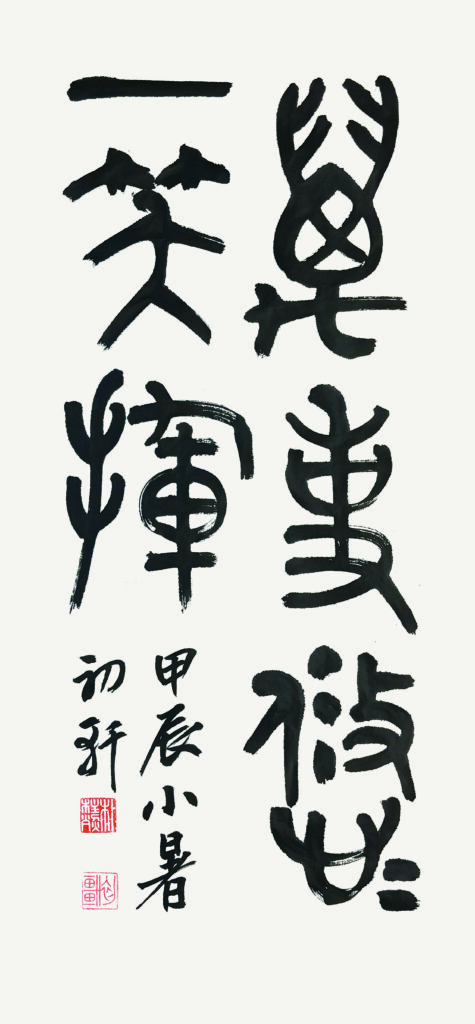 萬事悠〻
一笑揮
甲辰小暑
初軒